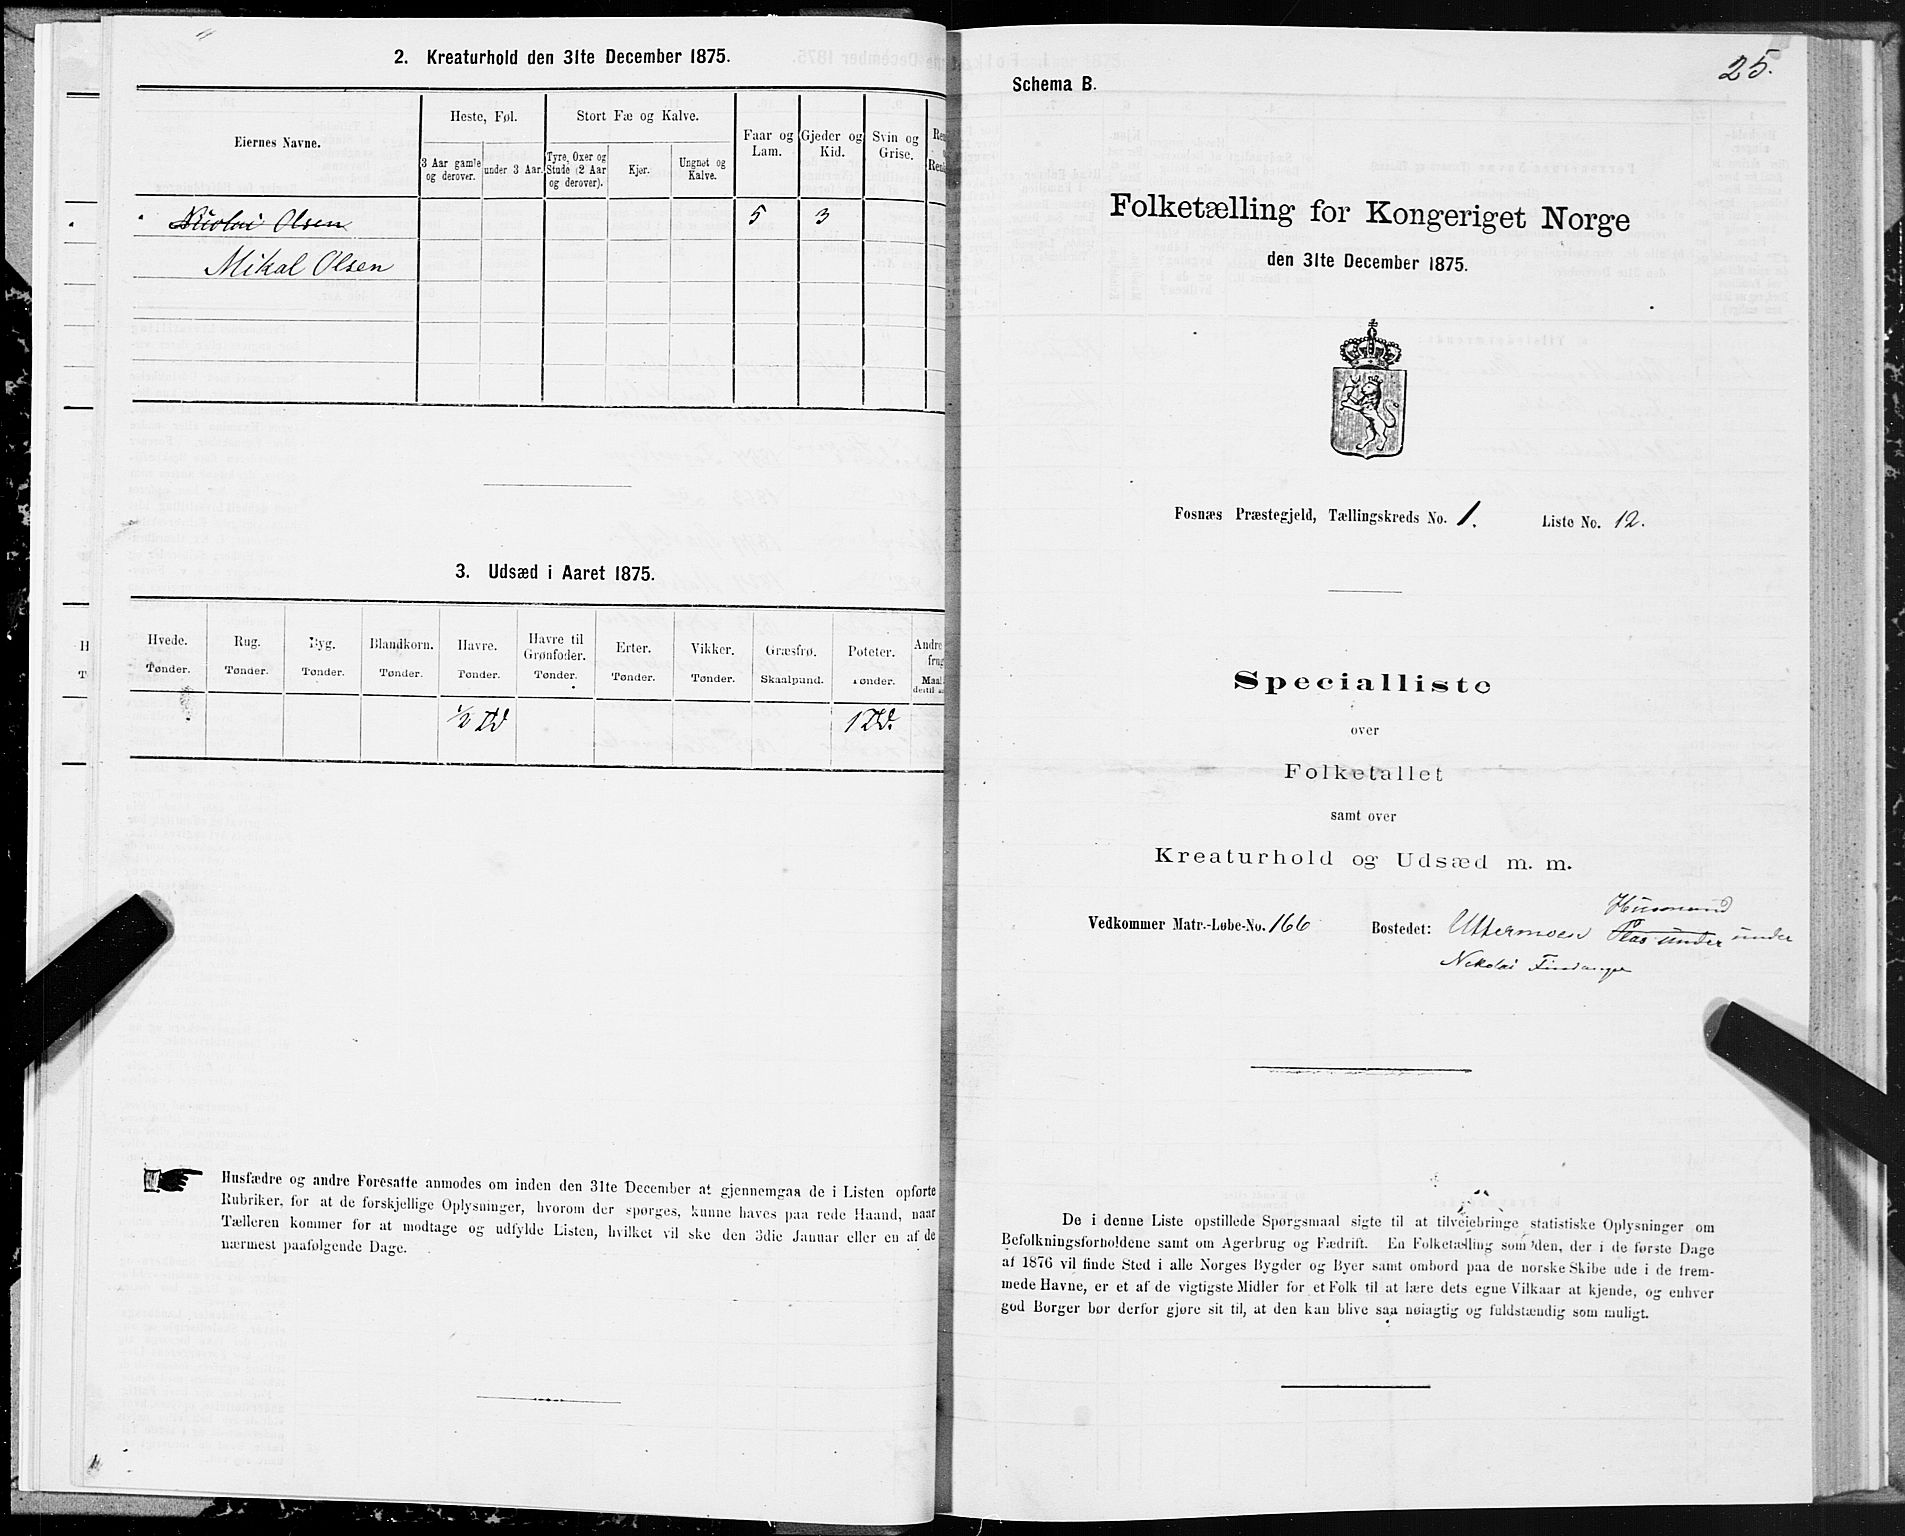 2. Kreaturhold den 31te December 1875.
Eiernes Navne.
Heste, Føl.
Stort Fæ og Kalve.
Faar og Lam.
Gjeder og Kid.
Svin og Grise.
3 Aar gamle og derover.
under 3 Aar.
Tyre, Oxer og Stude (2 Aar og derover).
Kjør.
Ungnøt og Kalve.
Nicolai Olsen 5 3
Mikal Olsen
3. Udsæd i Aaret 1875.
Hvede. Rug. Byg. Blandkorn. Havre. Havre til Grønfoder. Erter. Vikker. Græsfrø. Poteter. Andre
Tønder. Tønder. Tønder. Tønder. Tønder. Tønder. Tønder. Tønder. Skaalpund. Tønder. Maal
1/2 Td 1 Td.
Husfædre og andre Foresatte anmodes om inden den 31te December at gjennemgaa de i Listen opførte
Rubriker, for at de forskjellige Oplysninger, hvorom der spørges, kunne haves paa rede Haand, naar
Tælleren kommer for at modtage og udfylde Listen, hvilket vil ske den 3die Januar eller en af de
nærmest paafølgende Dage.
25.
Schema B.
Folketælling for Kongeriget Norge
den 31te December 1875.
Fosnæs Præstegjeld, Tællingskreds No. 1. Liste No. 12.
Specialliste
over
Folketallet
samt over
Kreaturhold og Udsæd m. m.
Husmand
Vedkommer Matr.-Løbe-No. 166 Bostedet: Uttermoen Plas under under
Nekolai Finvanger
De i denne Liste opstillede Spørgsmaal sigte til at tilveiebringe statistiske Oplysninger om
Befolkningsforholdene samt om Agerbrug og Fædrift. En Folketælling som den, der i de første Dage
af 1876 vil finde Sted i alle Norges Bygder og Byer samt ombord paa de norske Skibe ude i de frem-
mede Havne, er et af de vigtigste Midler for et Folk til at lære dets egne Vilkaar at kjende, og enhver
god Borger bør derfor gjøre sit til, at den kan blive saa nøiagtig og fuldstændig som muligt.